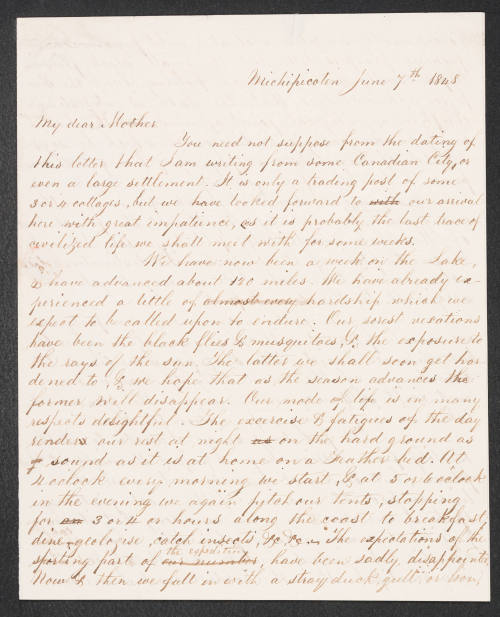 Michipicoten June 7th 1848
My dear Mother
You need not suppose from the dating of
this letter that I am writing from some Canadian City, or
even a large settlement. It is only a trading post of some
3 or 4 cottages, but we have looked forward to with our arrival
here with great impatience, as it is probably the last trace of
civilized life we shall meet with for some weeks.
We have now been a week on the Lake,
& have advanced about 120 miles. We have already ex-
perienced a little of almost every hardship which we
expect to be called upon to endure. Our sorest vexations
have been the black flies & musquitoes, & the exposure to
the rays of the sun. The latter we shall soon get har
dened to, & we hope that as the season advances the
former will disappear. Our mode of life is in many
respects delightful. The exercise & fatigues of the day
renders our rest at night as on the hard ground as
sound as it is at home on a feather bed. At
4 oclock every morning we start, & at 5 or 6 oclock
in the evening we again pitch our tents, stopping
for an 3 or 4 or hours along the coast to breakfast,
dine, geologise, catch insects, &c &c. The expectations of the
the expedition
sporting part of our number, have been sadly disappointed
Now & then we fall in with a stray duck, gull or loon,